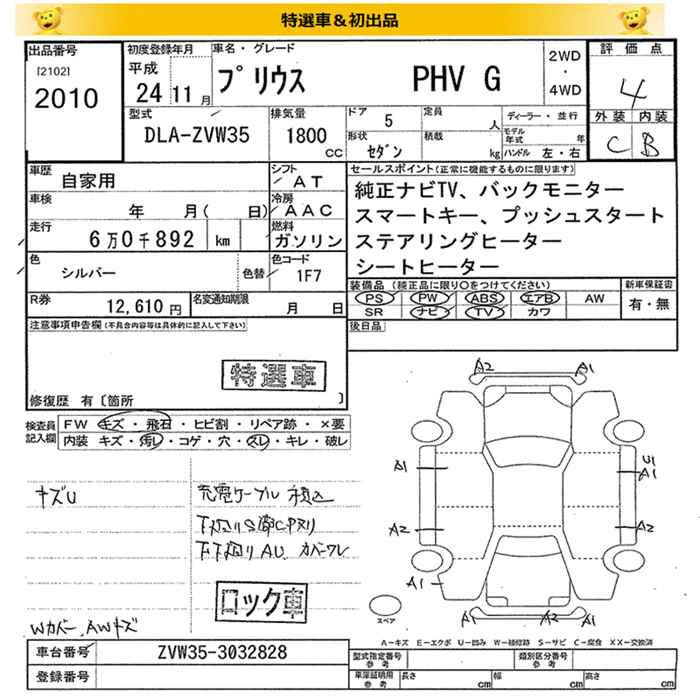 特選車&初出品
出品番号
[2102]
2010
初度登録年月
平成
24 11 月
車名・グレード
プリウス PHV G
2WD
・
4WD
評価点
4
外装 内装
C B
型式
DLA-ZVW35
排気量
1800
CC
ドア
5
形状
セダン
定員
人
積載
kg
ディーラー・並行
モデル年式 年
ハンドル 左・右
車歴
自家用
シフト
AT
車検
年 月( 日)
冷房
AAC
走行
6万0千892 km
燃料
ガソリン
色
シルバー
色替
色コード
1F7
R券
12,610 円
名変通知期限
月 日
セールスポイント(正常に機能するものに限ります)
純正ナビTV、バックモニター
スマートキー、プッシュスタート
ステアリングヒーター
シートヒーター
装備品(純正品に限り○をつけてください)
PS PW ABS エアB AW
SR ナビ TV カワ
新車保証書
有・無
後日品
注意事項申告欄(不具合内容等は具体的に記入して下さい)
特選車
修復歴 有〔箇所 〕
検査員
記入欄
FW キズ・飛石・ヒビ割・リペア跡・×要
内装 キズ・汚レ・コゲ・穴・スレ・キレ・破レ
キズU
充電ケーブル 積込
下廻りAU カバーワレ
ロック車
Wカバー、AWキズ
A2
A1
A1
U1
A1
A2
A2
A1
A1
A2
A1
スペア
A-キズ E-エクボ U-凹み W-補修跡 S-サビ C-腐食 XX-交換済
車台番号
ZVW35-3032828
登録番号
型式指定番号
参考
類別区分番号
参考
車庫証明用
参考
長さ cm
幅 cm
高さ cm